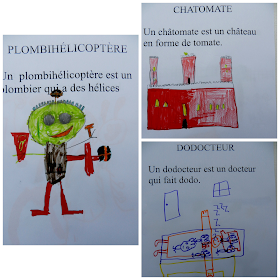 PLOMBIHÉLICOPTÈRE
Un plombihélicoptère est un
plombier qui a des hélices
CHATOMATE
Un châtomate est un château
en forme de tomate.
DODOCTEUR
Un dodocteur est un docteur
qui fait dodo.